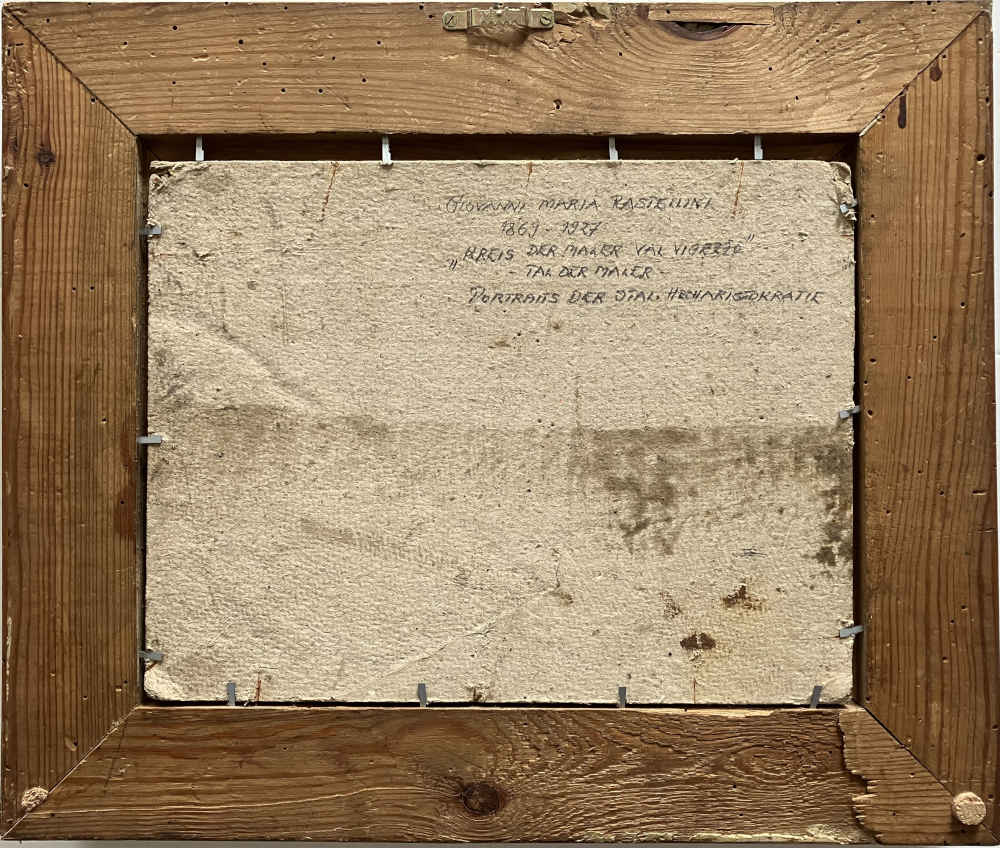 GIOVANNI MARIA RASTELLINI
1869 - 1927
„KREIS DER MALER VAL VIGEZZO"
- TAL DER MALER -
PORTRAITS DER ITAL. HOCHARISTOKRATIE